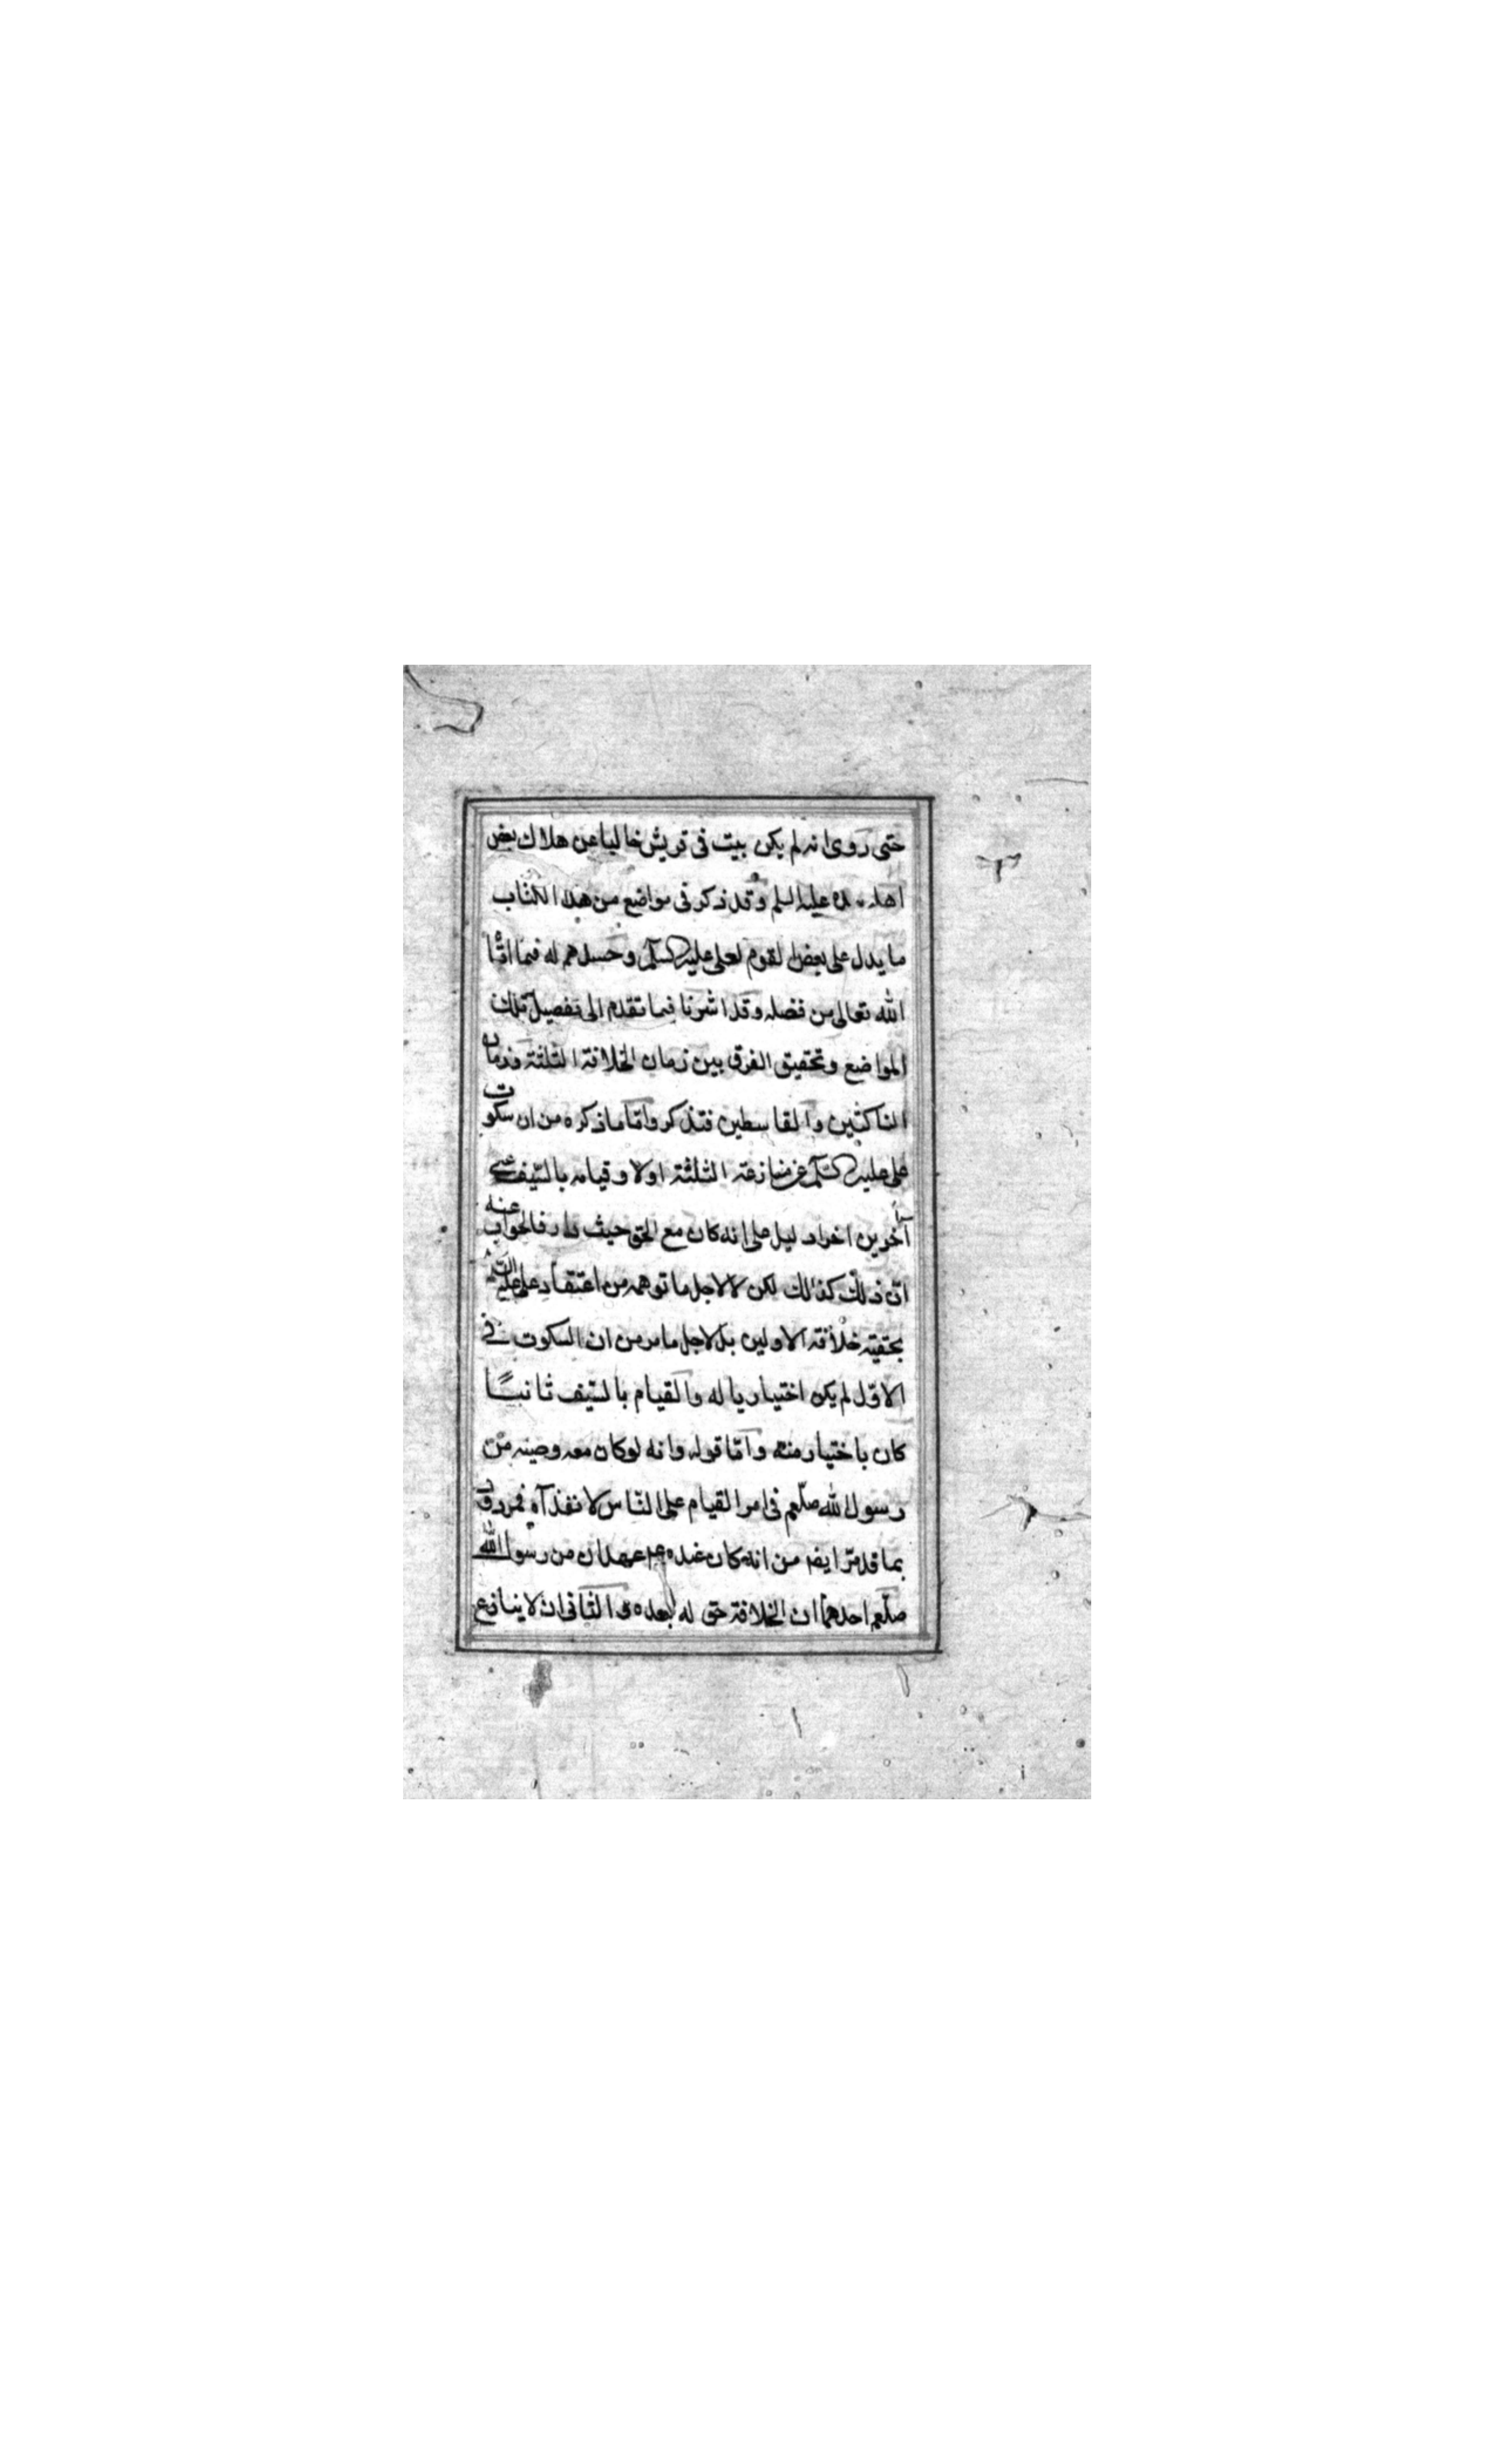 حتى روى انه لم يكن بيت فى قريش خاليا عن هلاك بعض
اهله عليه السلم وقد ذكر فى مواضع من هذا الكتاب
ما يدل على بعض القوم لعلى عليه السلم وحسدهم له فيما اتا
الله تعالى من فضله وقد اشرنا فيما تقدم الى تفصيل تلك
المواضع وتحقيق الفرق بين زمان الخلافة الثلثة وزمان
الناكثين والقاسطين فتذكر واما ما ذكره من ان سكوت
على عليه السلم عن منازعة الثلثة اولا وقيامه بالسيف على
آخرين اخرا دليل على انه كان مع الحق حيث دار فالجواب عنه
ان ذلك كذلك لكن لا لاجل ما توهمه من اعتقاد على عليه
بحقية خلافة الاولين بل لاجل ما مر من ان السكوت فى
الاول لم يكن اختياريا له والقيام بالسيف ثانيا
كان باختيار منه واما قوله وانه لو كان معه وصية من
رسول الله صلعم فى امر القيام على الناس لانفذ آه فمردود
بما قد مر ايضا من انه كان عنده عهدان من رسول الله
صلعم احدهما ان الخلافة حق له بعده والثانى ان لا ينازع